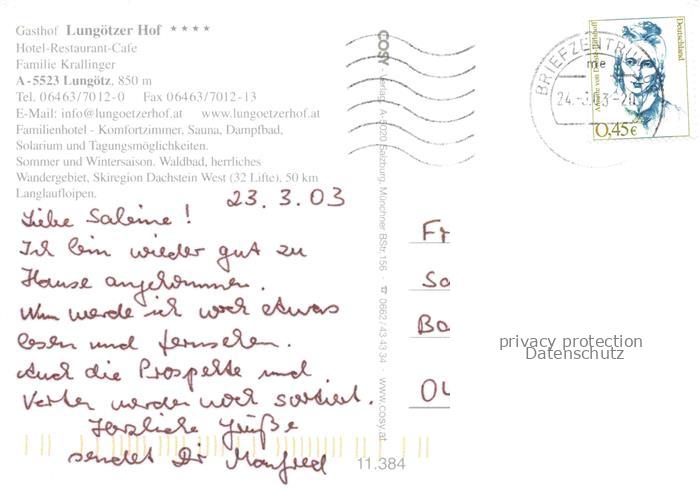 Gasthof Lungötzer Hof ****
Hotel-Restaurant-Cafe
Familie Krallinger
A-5523 Lungötz, 850 m
Tel. 06463/7012-0 Fax 06463/7012-13
E-Mail: info@lungoetzerhof.at www.lungoetzerhof.at
Familienhotel - Komfortzimmer, Sauna, Dampfbad,
Solarium und Tagungsmöglichkeiten.
Sommer und Wintersaison. Waldbad, herrliches
Wandergebiet, Skiregion Dachstein West (32 Lifte), 50 km
Langlaufloipen.
23.3.03
Liebe Sabine!
Ich bin wieder gut zu
Hause angekommen.
Nun werde ich noch etwas
lesen und fernsehen.
Auch die Prospekte und
Karten werden noch sortiert.
Herzliche Grüße
sendet Dir Manfred
COSY - Verlag, A-5020 Salzburg, Münchner BStr. 156 · ☎ 0662/43 43 34 · www.cosy.at
11.384
BRIEFZENTRUM
me
24.-3.03-20
Deutschland
0,45€
Fr
Sa
Ba
04
privacy protection
Datenschutz